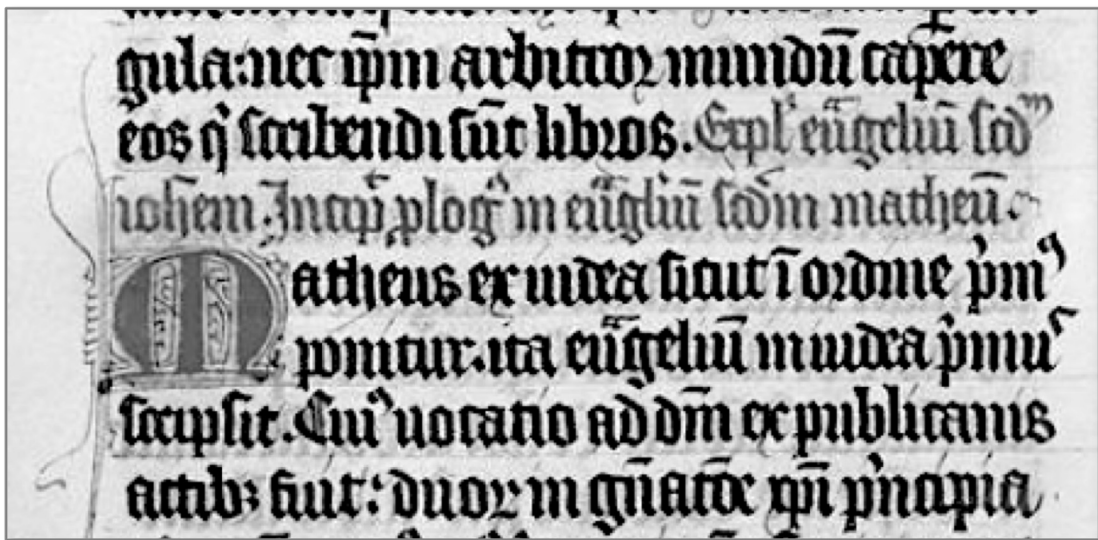 gula: nec ip̄m arbitror mundū cap̄ere
eos q̇ scribendi sūt libros. Expl̓ eūgeliū scd̓m
ioh̄em. Incip̄ ꝓlog̓ in eūgliū scd̄m matheū.
Matheus ex iudea sicut ī ordine p̓mꝰ
ponitur. ita eūgeliū in iudea p̓muˢ
scripsit. Cuiꝰ uocatio ad dm̄ ex publicanis
actibꝫ fuit: duoꝝ in gn̄atōe xp̄i p̓ncipia